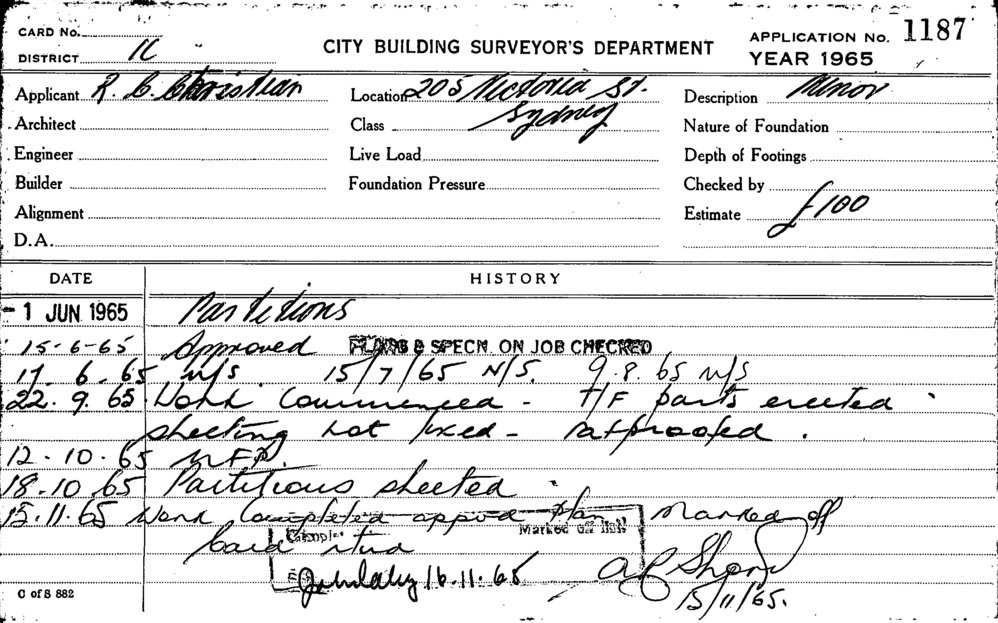 CARD No.
DISTRICT 1C
CITY BUILDING SURVEYOR'S DEPARTMENT
APPLICATION No. 1187
YEAR 1965
Applicant R. C. Christian
Location 205 Victoria St.
Sydney
Description Minor
Architect
Class
Nature of Foundation
Engineer
Live Load
Depth of Footings
Builder
Foundation Pressure
Checked by
Alignment
Estimate £100
D.A.
DATE HISTORY
- 1 JUN 1965 Partitions
15-6-65 Approved PLANS & SPECN. ON JOB CHECKED
17. 6. 65 N/S. 15/7/65 N/S. 9.8.65 N/S
22. 9. 65 Work Commenced - T/F parts erected
sheeting not fixed - ratproofed.
12-10-65 NFP.
18-10.65 Partitions sheeted.
15.11.65 Work Completed appvd Plan Marked off
Card
Marked off
16.11.65
15/11/65.
C of S 882